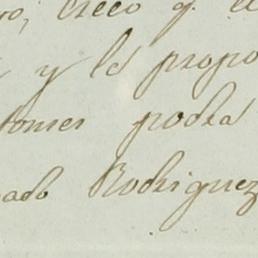 ro, creo q. el
y le propo
tonces podra
ado Rodriguez